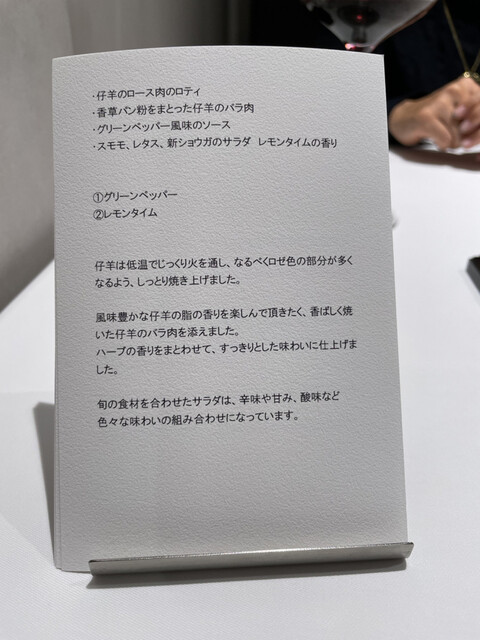 ・仔羊のロース肉のロティ
・香草パン粉をまとった仔羊のバラ肉
・グリーンペッパー風味のソース
・スモモ、レタス、新ショウガのサラダ レモンタイムの香り
①グリーンペッパー
②レモンタイム
仔羊は低温でじっくり火を通し、なるべくロゼ色の部分が多く
なるよう、しっとり焼き上げました。
風味豊かな仔羊の脂の香りを楽しんで頂きたく、香ばしく焼
いた仔羊のバラ肉を添えました。
ハーブの香りをまとわせて、すっきりとした味わいに仕上げま
した。
旬の食材を合わせたサラダは、辛味や甘み、酸味など
色々な味わいの組み合わせになっています。